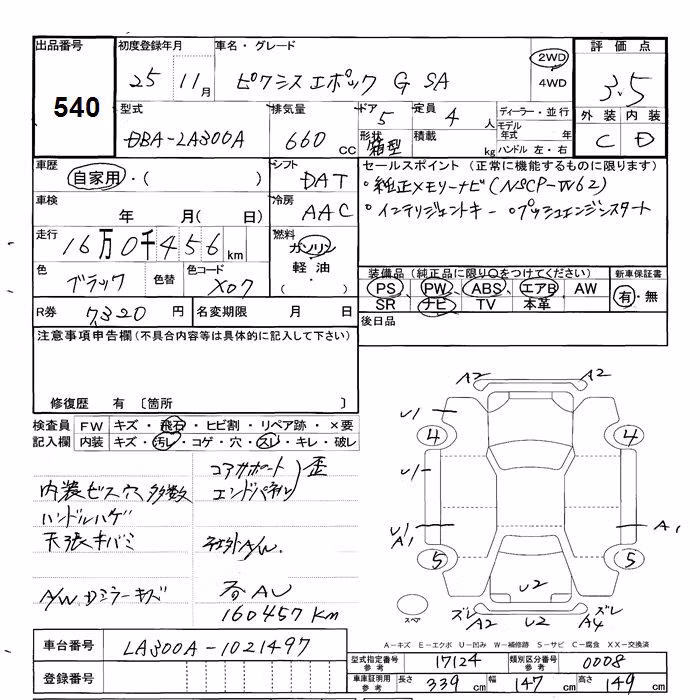 出品番号 初度登録年月 車名・グレード 評価点
540 25 11月 ピクシスエポック G SA 2WD 4WD 3.5
型式 排気量 ドア 定員 ディーラー・並行 外装 内装
DBA-LA300A 660cc 5 4人 モデル年式 年 C D
形状 箱型 積載 kg ハンドル 左・右
車歴 自家用・( ) シフト DAT セールスポイント(正常に機能するものに限ります)
・純正メモリーナビ(NSCP-W62)
車検 年 月(日) 冷房 AAC ・インテリジェントキー ・プッシュエンジンスタート
走行 16万0千456km 燃料 ガソリン 軽油 ( )
色 ブラック 色替 色コード X07
装備品(純正品に限り○をつけてください) 新車保証書
PS PW ABS エアB AW 有・無
SR ナビ TV 本革
R券 7,320円 名変期限 月 日 後日品
注意事項申告欄(不具合内容等は具体的に記入して下さい)
修復歴 有 〔箇所 〕
検査員記入欄 FW キズ・飛石・ヒビ割・リペア跡・×要
内装 キズ・汚レ・コゲ・穴・スレ・キレ・破レ
コアサポート
エンドパネル 歪
内装ビス穴多数
ハンドルハゲ
天張キバミ 社外A/W.
A/W.Dミラーキズ
160457km
A2 A2
U1 4 4
U1
U1 A1 A1
5 5
U2
スペア ズレ A2 U2 A4 ズレ
A-キズ E-エクボ U-凹み W-補修跡 S-サビ C-腐食 XX-交換済
車台番号 LA300A-1021497
型式指定番号 参考 17124 類別区分番号 参考 0008
登録番号
車庫証明用 参考 長さ 339cm 幅 147cm 高さ 149cm